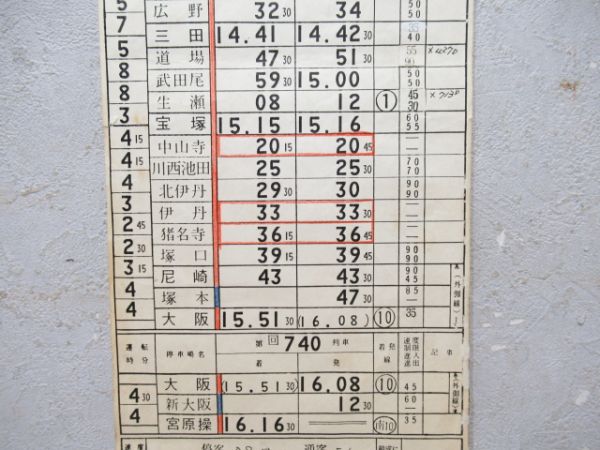 5 広野 32 30 34 50 50
7 三田 14.41 14.42 30 35 40
5 道場 47 51 30 55 90
8 武田尾 59 30 15.00 50 50
8 生瀬 08 12 ① 45 30
3 宝塚 15.15 15.16 60 55
4 15 中山寺 20 15 20 45 — —
4 15 川西池田 25 25 30 70 70
4 北伊丹 29 30 30 — —
3 伊丹 33 33 30 — —
2 45 猪名寺 36 15 36 45 — —
2 30 塚口 39 15 39 45 90 90
3 15 尼崎 43 43 30 90 45
4 塚本 47 30 85
4 大阪 15.51 30 (16.08) ⑩ 35
(外側線)
運転時分 停車場名 第回740列車 着 発 着発線 速度制限進入進出 記事
大阪 (15.51 30) 16.08 ⑩ 45
4 30 新大阪 12 30 60 —
4 宮原操 16.16 30 (南10) 35
(外側線)
速度